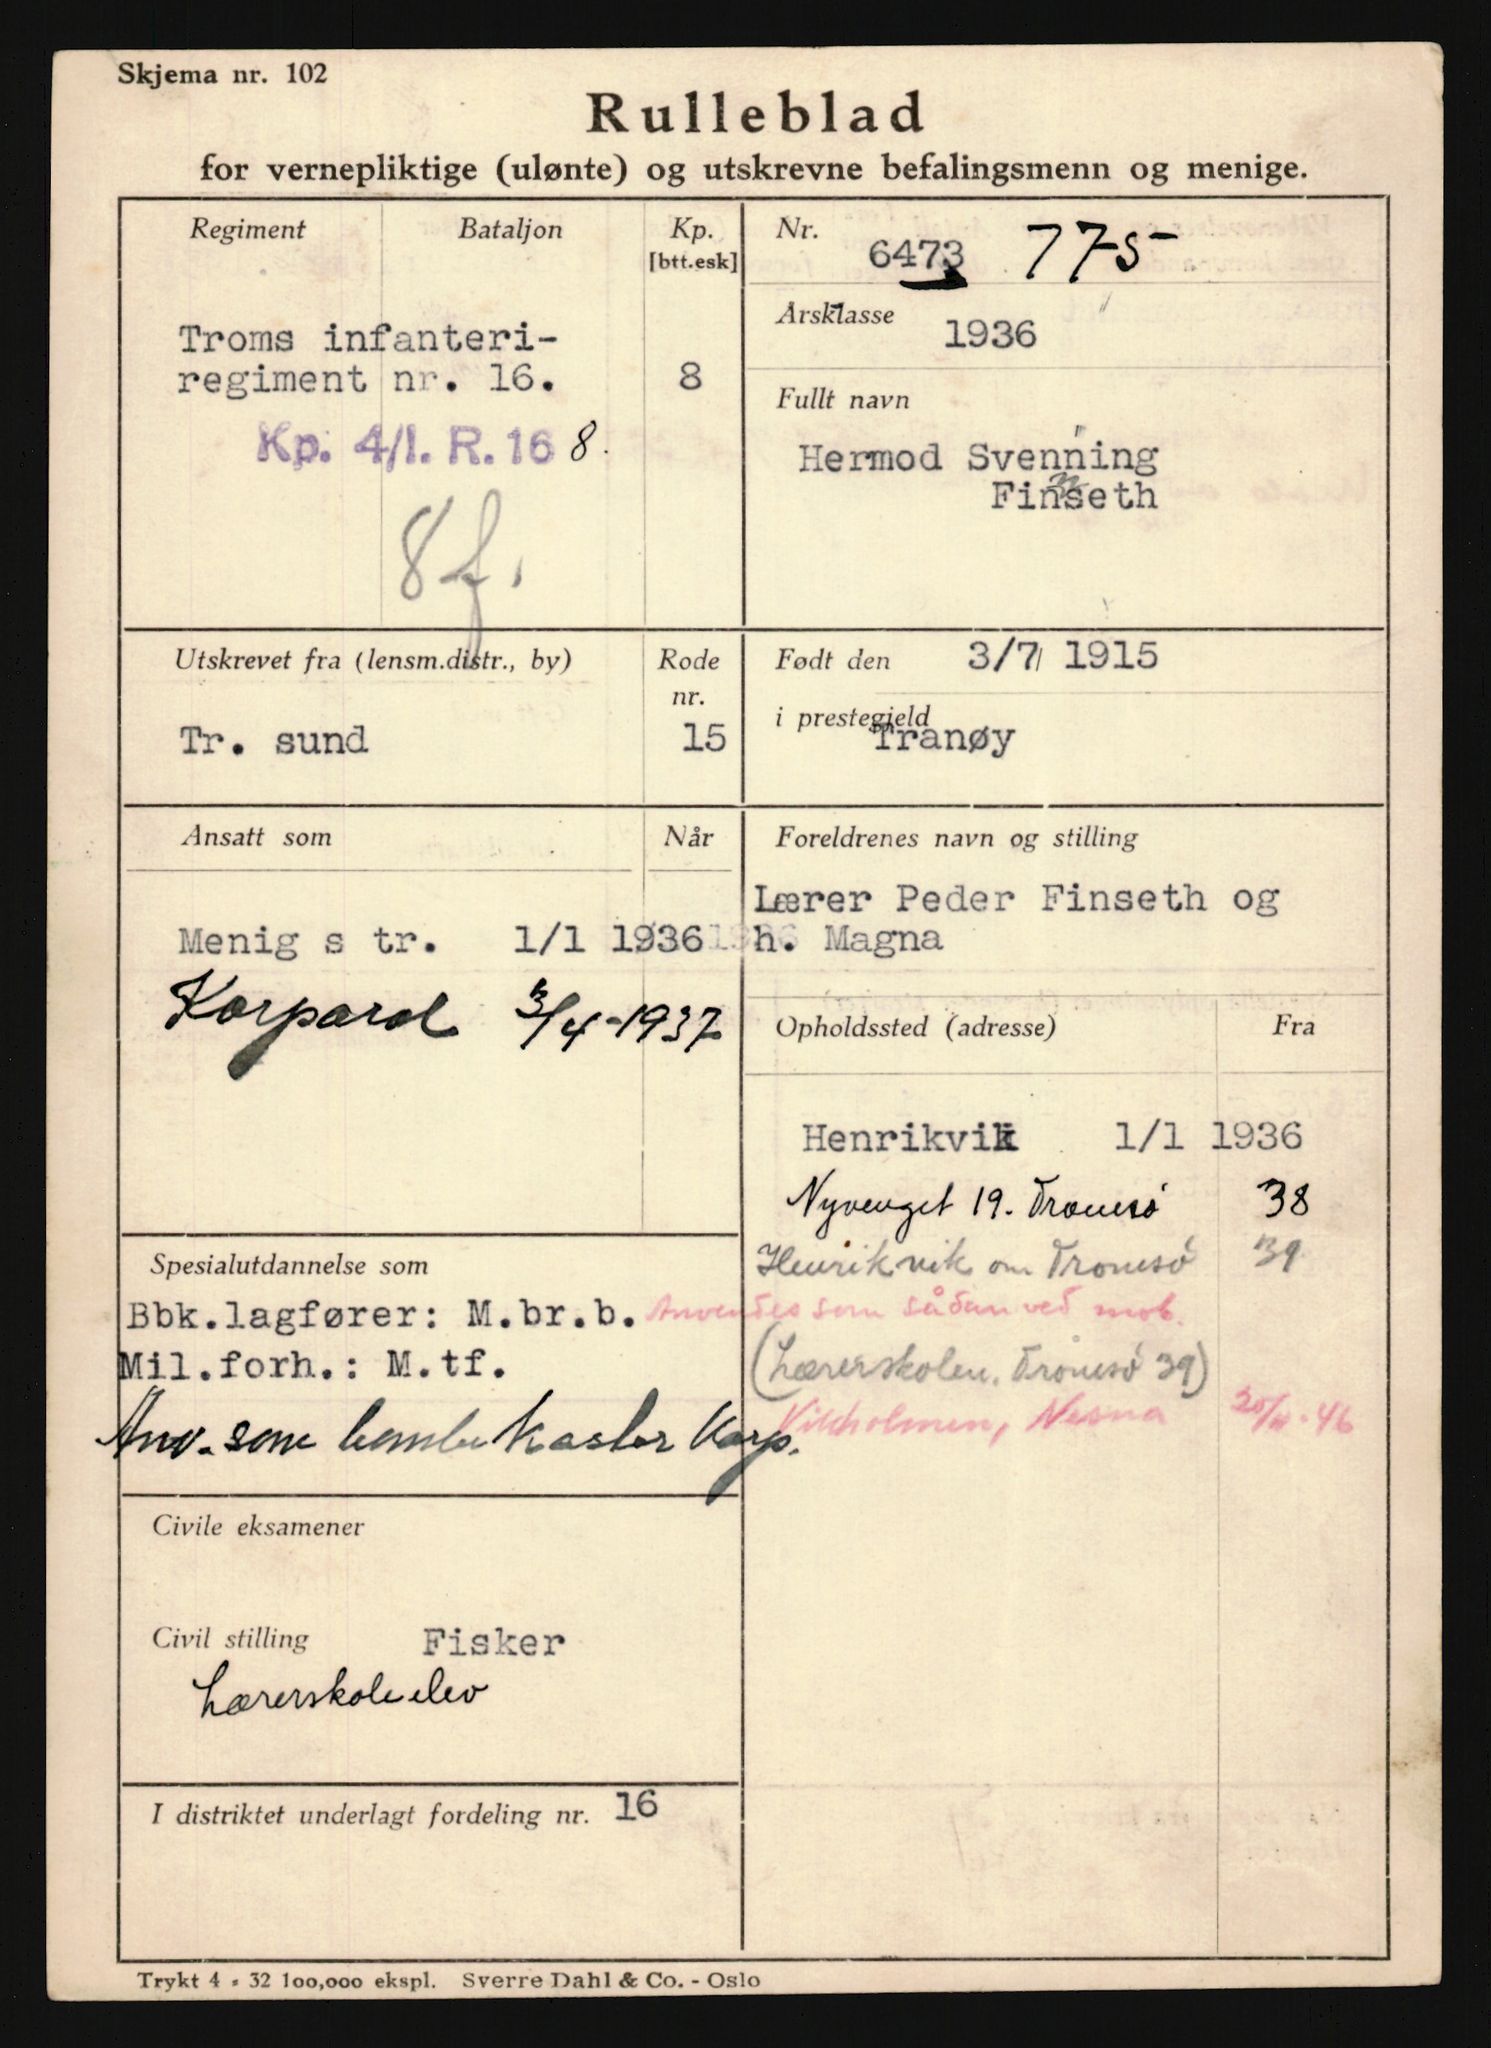 Skjema nr. 102
Rulleblad
for vernepliktige (ulønte) og utskrevne befalingsmenn og menige.
Regiment Bataljon Kp.
[btt.esk]
Troms infanteri-
regiment nr. 16. 8
Kp. 4/I. R. 16 8.
8f.
Nr. 6473 775
Årsklasse 1936
Fullt navn
Hermod Svenning
Finseth
Utskrevet fra (lensm.distr., by) Rode
nr.
Tr. sund 15
Født den 3/7 1915
i prestegjeld
Tranøy
Ansatt som Når
Menig s tr. 1/1 1936
Korporal 3/4-1937
Foreldrenes navn og stilling
Lærer Peder Finseth og
h. Magna
Opholdssted (adresse) Fra
Henrikvik 1/1 1936
Nyvenget 19. Tromsö 38
Henrikvik om Tromsö 39
Spesialutdannelse som
Bbk.lagfører: M.br.b. Anvendes som sådan ved mob.
Mil.forh.: M.tf.
Anv. som bombekaster Korp.
(Lærerskolen, Tromsö 39)
Vikholmen, Nesna 46
Civile eksamener
Civil stilling Fisker
Lærerskoleelev
I distriktet underlagt fordeling nr. 16
Trykt 4 - 32 100,000 ekspl. Sverre Dahl & Co. - Oslo